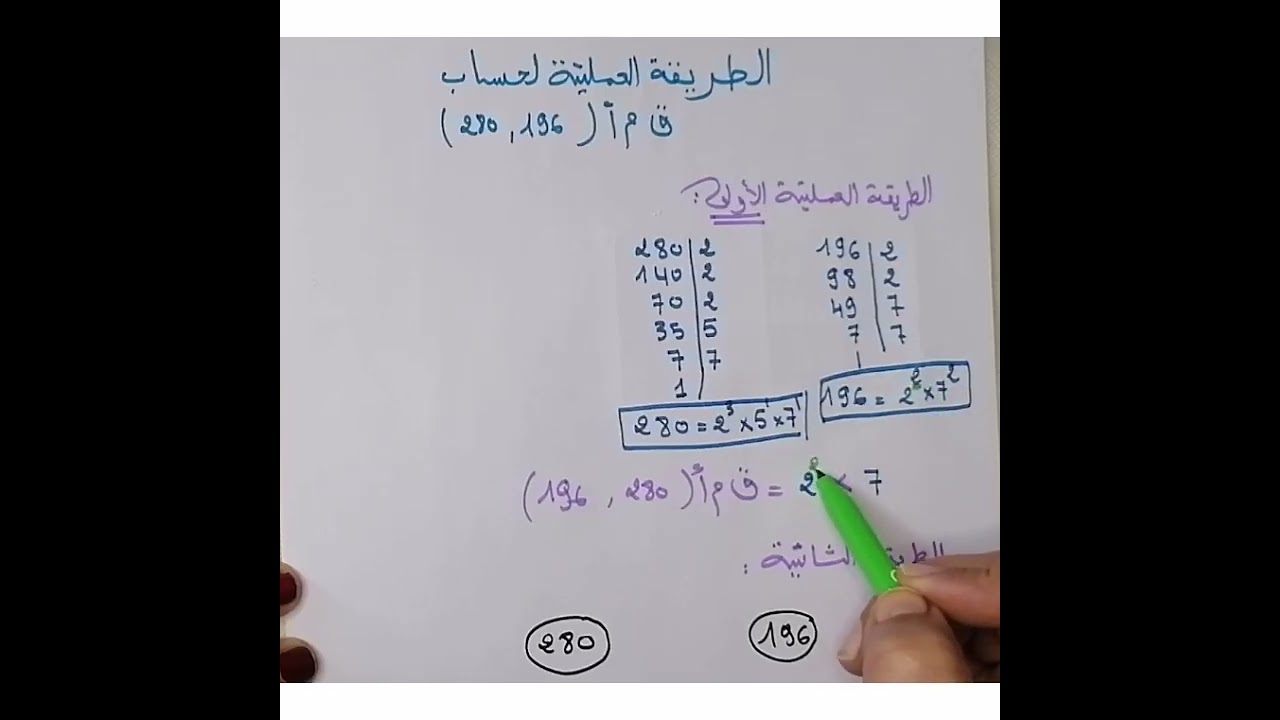 الطريقة العمليّة لحساب
ق م أ (280 , 196)
الطريقة العمليّة الأولى:
280 | 2
140 | 2
70 | 2
35 | 5
7 | 7
1 |
280 = 2³ × 5¹ × 7¹
196 | 2
98 | 2
49 | 7
7 | 7
1
196 = 2² × 7²
ق م أ (196 , 280) = 2 × 7
الثانية :
280
196